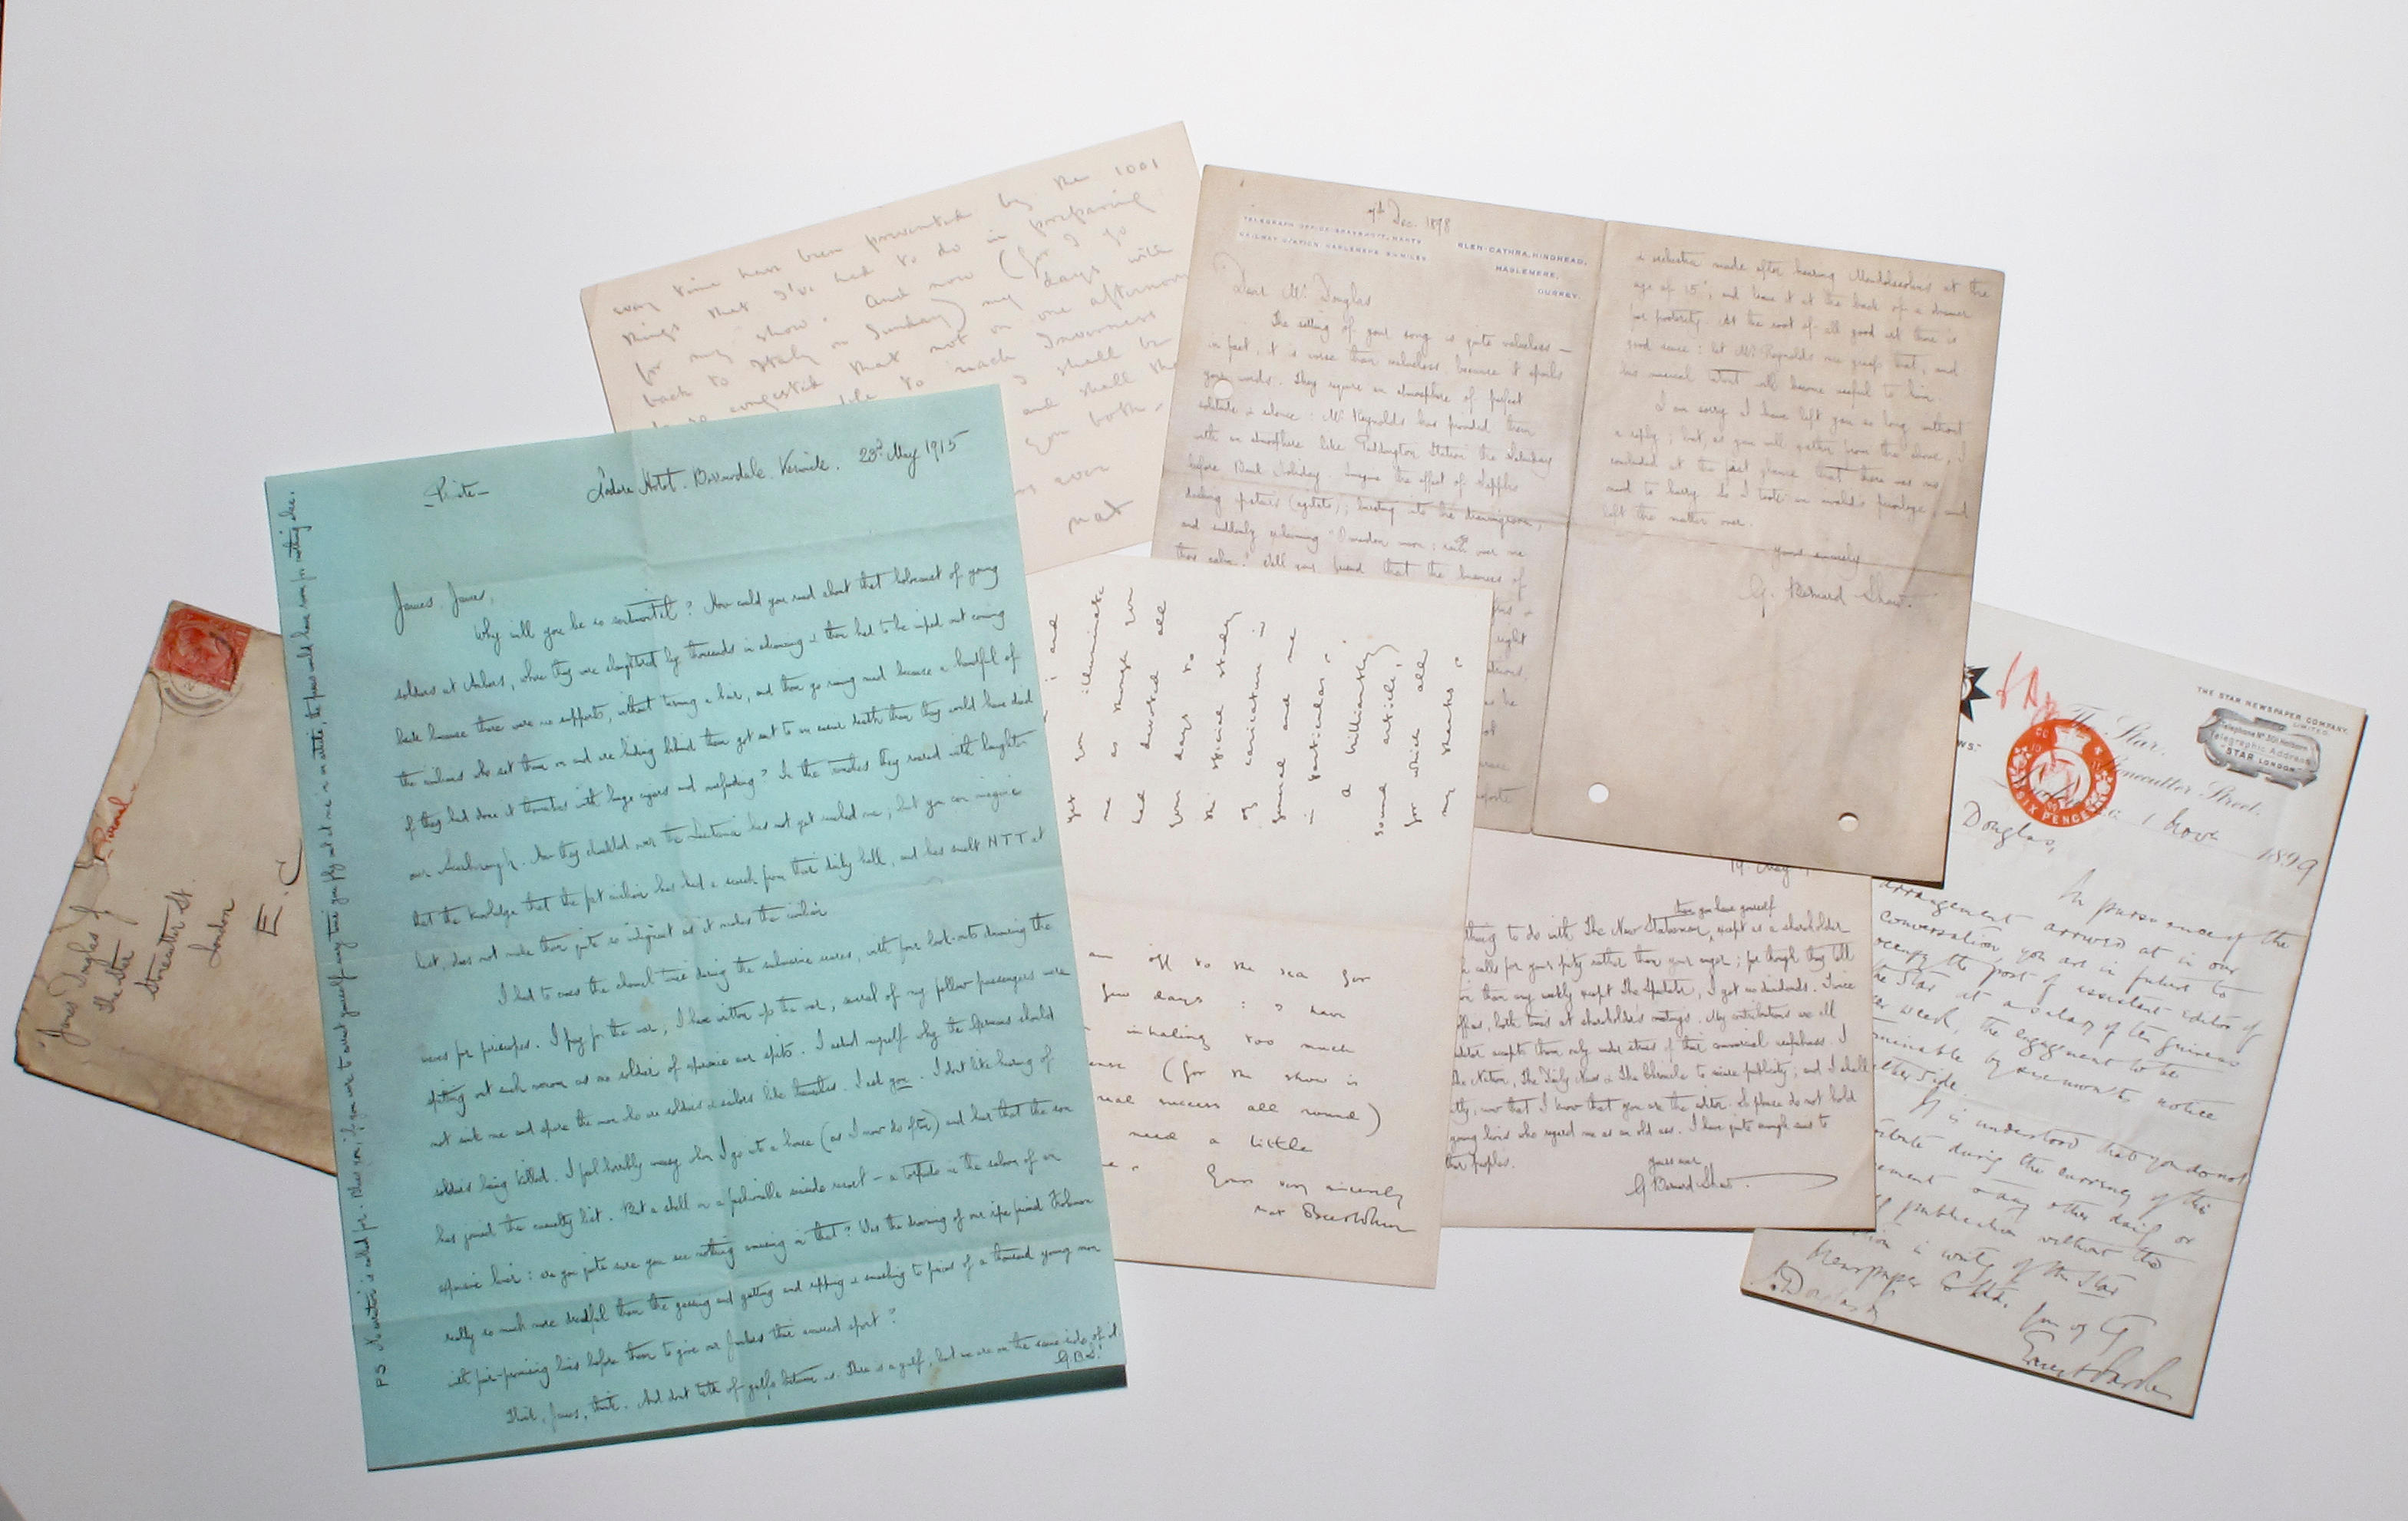 James Douglas
The Star
Stonecutter St.
London
E.C.
Personal
Private
Lodore Hotel. Borrowdale. Keswick. 23rd May 1915
James, James,
Why will you be so sentimental? How could you read about that holocaust of young
soldiers at, where they were slaughtered by thousands in advancing & then had to be wiped out coming
back because there were no supports, without turning a hair, and then go raving mad because a handful of
the civilians who set them on and are hiding behind them got sent to an easier death than they could have died
if they had done it themselves with huge cigars and? In the trenches they roared with laughter
over Scarborough. How they chuckled over the Lusitania has not yet reached me; but you can imagine
that the knowledge that the fat civilian has had a search from that dirty hell, and has smelt N T T at
last, does not make them quite so indignant as it makes the civilian
I had to cross the channel twice during the submarine scares, with four look-outs scanning the
waves for periscopes. I pay for the war, I have written up the war, several of my fellow passengers were
spitting out such venom as no soldier of experience ever spits. I asked myself why the Germans should
not sink me and spare the men who are soldiers & sailors like themselves. I ask you. I dont like hearing of
soldiers being killed. I feel horribly uneasy when I go into a house (as I now do often) and hear that the son
has joined the casualty list. But a shell in a fashionable seaside resort – a torpedo in the saloon of an
expensive liner: are you quite sure you see nothing amusing in that? Was the drowning of our
really so much more dreadful than the gassing and gutting and ripping & smashing to pieces of a thousand young men
with fair-promising lives before them to give our Junkers their sport?
Think, James, think. And dont talk of gulfs between us. There is a gulf; but we are on the same side of it.
G.B.S.
PS No is called for. Bless you, if you were to excuse yourself every time you fly out at me in an article, the press would have room for nothing else.
every time have been prevented by the 1001
things that I've had to do in preparing
for my show. And now (for I go
back to Italy on Sunday) my days will
be so congested that not on one afternoon
to reach Inverness
I shall be
and shall the
you both –
ever
Max
7th Dec. 1898
TELEGRAPH OFFICE: GRAYSHOTT, HANTS
RAILWAY STATION: HASLEMERE
BLEN-CATHRA, HINDHEAD,
HASLEMERE,
SURREY.
Dear Mr Douglas
The setting of your song is quite valueless –
in fact, it is worse than valueless because it spoils
your words. They require an atmosphere of perfect
solitude & silence: Mr Reynolds has provided them
with an atmosphere like Paddington Station the Saturday
before Bank Holiday. Imagine the effect of Sappho
dashing upstairs (agitato), bursting into the drawingroom,
and suddenly exclaiming "O maiden moon:
Tell your friend that the business of
right
& orchestra made after hearing Mendelssohn's at the
age of 15", and leave it at the back of a drawer
for posterity. At the root of all good art there is
good sense: let Mr Reynolds once grasp that, and
his musical talent will become useful to him
I am sorry I have left you so long without
a reply; but, as you will gather from the above, I
concluded at the first glance that there was no
need to hurry. So I took an invalid's privilege, and
left the matter over.
yours sincerely
G. Bernard Shaw.
and
yet you illuminate
me as though you
had devoted all
your days to
the special study
of caricature in
general and me
in particular.
A brilliantly
sound article,
for which all
my thanks.
am off to the sea for
few days: I have
inhaling too much
(for the show is
real success all round)
need a little
Yours very sincerely
Max Beerbohm
19 May
than you have yourself
thing to do with The New Statesman, except as a shareholder
calls for your pity rather than your anger; for though they tell
than any weekly except The Spectator, I get no dividends. Twice
offices, both times at shareholders meetings. My contributions are all
editor accepts them only under stress of their commercial usefulness. I
The Nation, The Daily News & The Chronicle to secure publicity; and I shall
now that I know that you are the editor. So please do not hold
young lions who regard me as an old ass. I have quite enough sins to
other peoples.
yours ever
G. Bernard Shaw.
THE STAR NEWSPAPER COMPANY,
LIMITED
Telephone No 301 Holborn
Telegraphic Address
"STAR LONDON"
The Star.
Stonecutter Street.
SIX PENCE
1 Novr 1899
Douglas,
In pursuance of the
arrangement arrived at in our
conversation, you are in future to
occupy the post of assistant editor of
the Star at a salary of ten guineas
per week, the engagement to be
terminable by six months notice
either side.
It is understood that you do not
contribute during the currency of this
agreement to any other daily or
publication without the
in writing of the Star
Newspaper Co Ltd.
Ernest Parke
J. Douglas